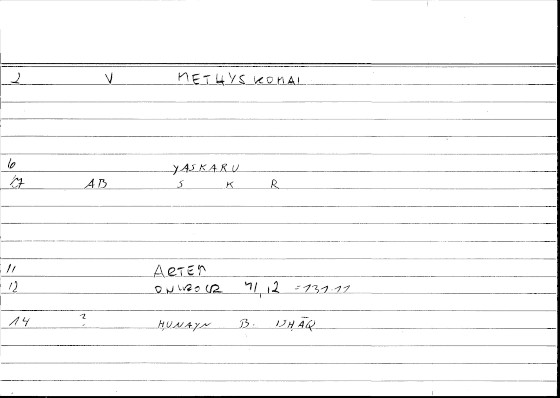 2 V METHYSKOMAI
6 YASKARU
AB S K R
11 ARTEM
12 ONIROCR 71,12 = 131.11
14 ? HUNAYN B. ISHĀQ